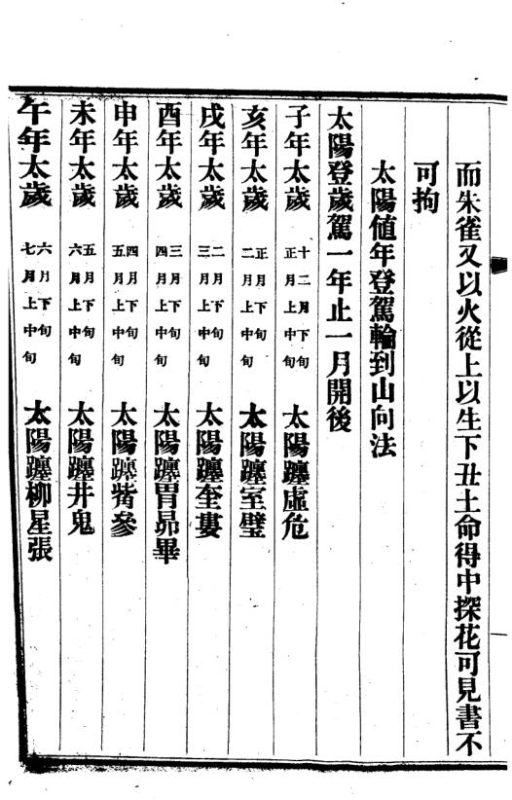 而朱雀又以火從上以生下丑土命得中探花可見書不
可拘
太陽值年登駕輪到山向法
太陽登歲駕一年止一月開後
子年太歲 十二月下旬 正月上中旬 太陽躔虛危
亥年太歲 正月下旬 二月上中旬 太陽躔室壁
戌年太歲 二月下旬 三月上中旬 太陽躔奎婁
酉年太歲 三月下旬 四月上中旬 太陽躔胃昴畢
申年太歲 四月下旬 五月上中旬 太陽躔觜參
未年太歲 五月下旬 六月上中旬 太陽躔井鬼
午年太歲 六月下旬 七月上中旬 太陽躔柳星張